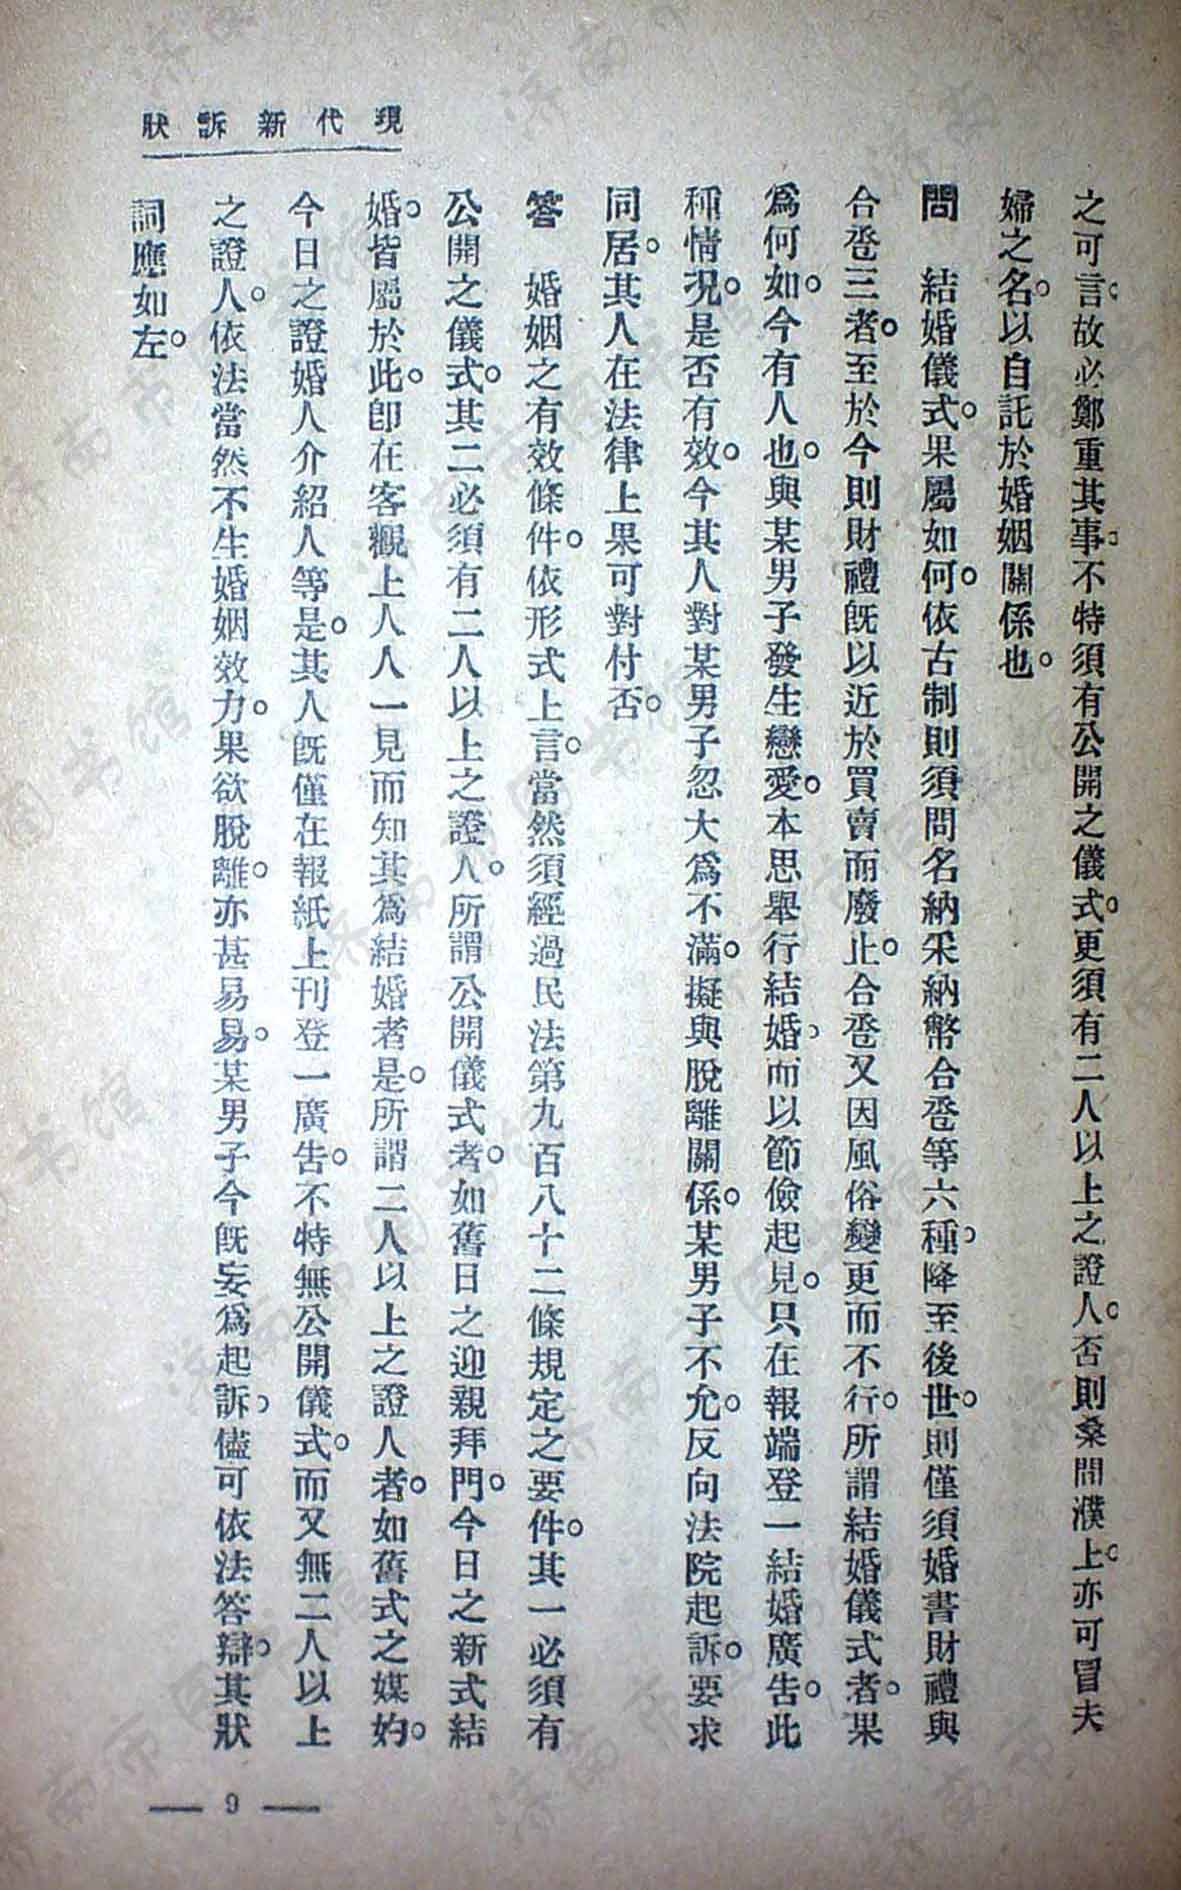 現代新訴狀
之可言。故必鄭重其事。不特須有公開之儀式。更須有二人以上之證人。否則桑間濮上。亦可冒夫
婦之名。以自託於婚姻關係也。
問　結婚儀式。果屬如何。依古制則須問名納采納幣合卺等六種。降至後世。則僅須婚書財禮與
合卺三者。至於今則財禮旣以近於買賣而廢止。合卺又因風俗變更而不行。所謂結婚儀式者。果
爲何如。今有人也。與某男子發生戀愛。本思舉行結婚。而以節儉起見。只在報端登一結婚廣告。此
種情况。是否有效。今其人對某男子忽大爲不滿。擬與脫離關係。某男子不允。反向法院起訴。要求
同居。其人在法律上果可對付否。
答　婚姻之有效條件。依形式上言。當然須經過民法第九百八十二條規定之要件。其一必須有
公開之儀式。其二必須有二人以上之證人。所謂公開儀式者。如舊日之迎親拜門。今日之新式結
婚。皆屬於此。卽在客觀上人人一見而知其爲結婚者是。所謂二人以上之證人者。如舊式之媒妁。
今日之證婚人介紹人等是。其人旣僅在報紙上刊登一廣告。不特無公開儀式。而又無二人以上
之證人。依法當然不生婚姻效力。果欲脫離。亦甚易易。某男子今旣妄爲起訴。儘可依法答辯。其狀
詞應如左。
— 9 —
济南市图书馆